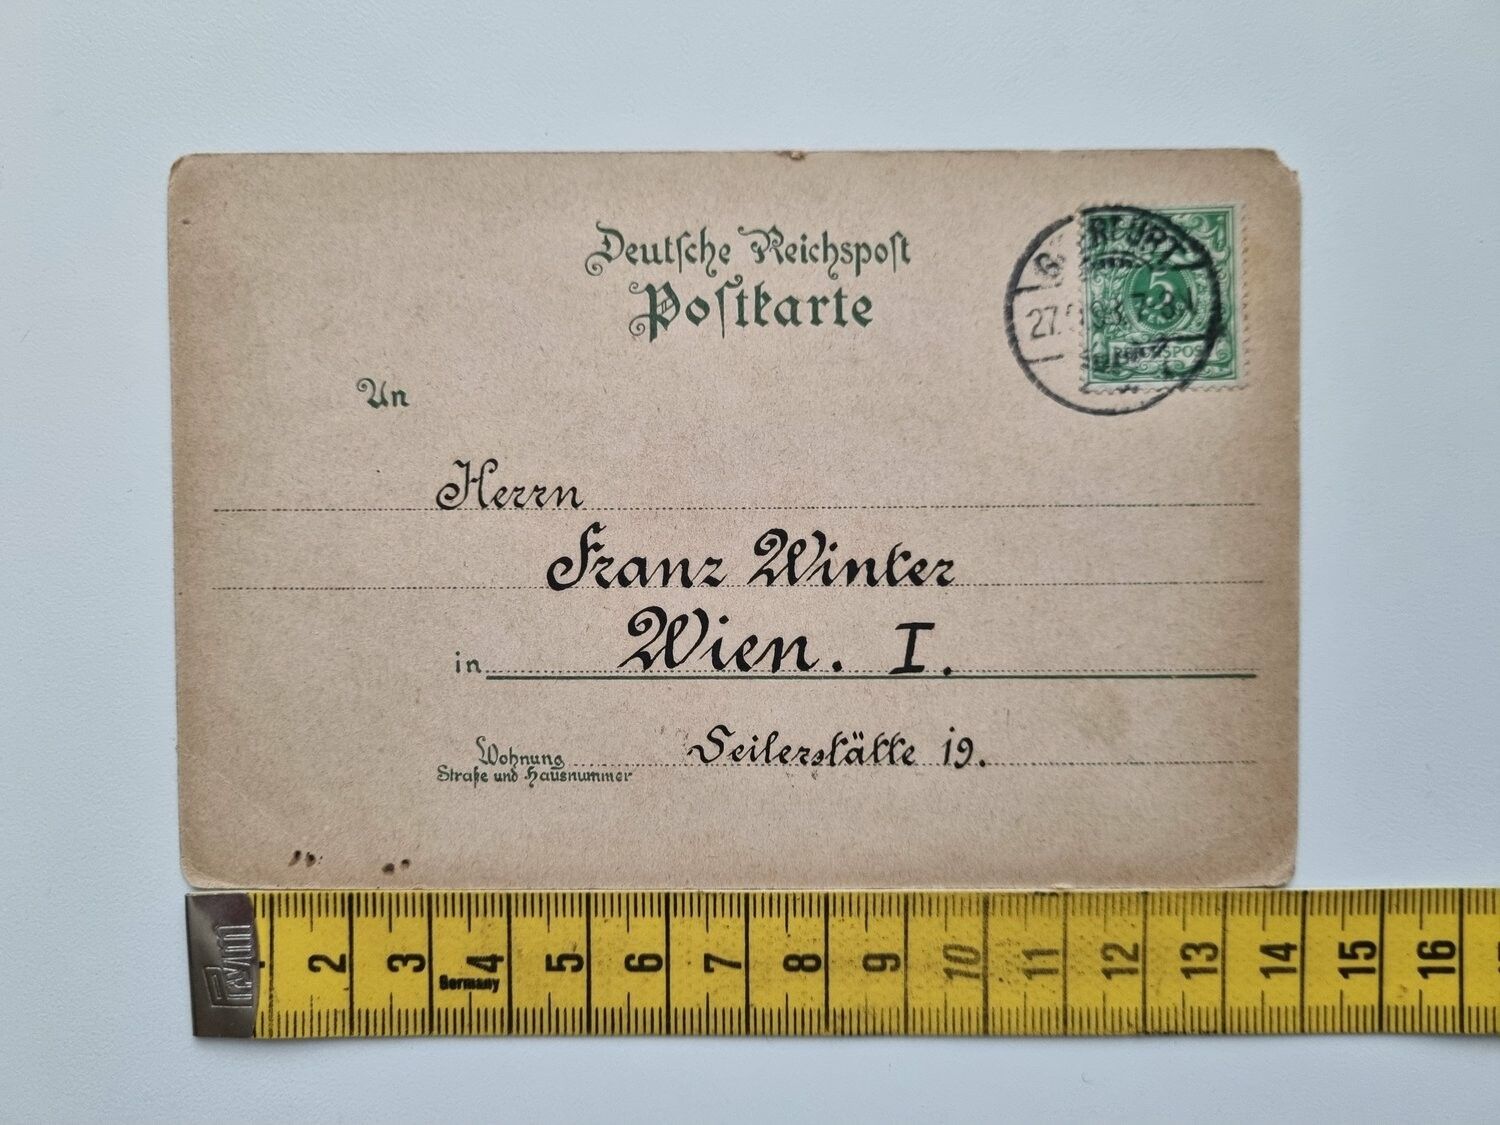 Deutsche Reichspost
Postkarte
An
Herrn
Franz Winter
in Wien. I.
Wohnung Seilerstätte 19.
Straße und Hausnummer
5
REICHSPOST
2 3 4 5 6 7 8 9 10 11 12 13 14 15 16
Germany
Prym